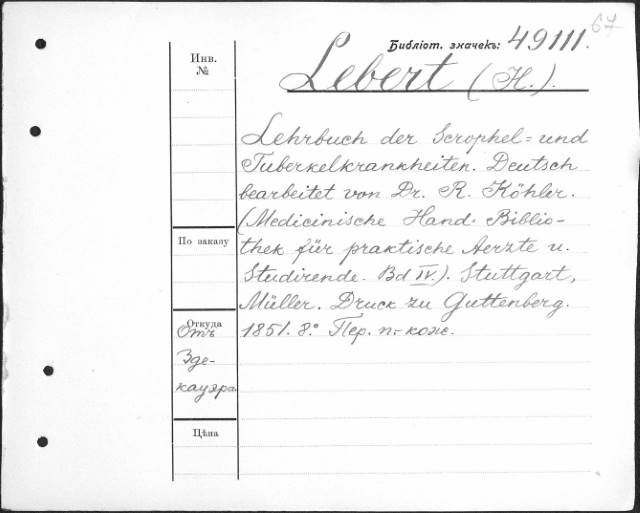 67
Библіот. значекъ: 49111.
Инв.
№
Lebert (H.).
Lehrbuch der Scrophel= und
Tuberkelkrankheiten. Deutsch
bearbeitet von Dr. R. Köhler.
(Medicinische Hand-Biblio-
По заказу
thek für praktische Aerzte u.
Studirende. Bd IV). Stuttgart,
Müller. Druck zu Guttenberg.
Откуда
1851. 8.° Пер. п.-кож.
Отъ
Зде-
кауэра.
Цѣна